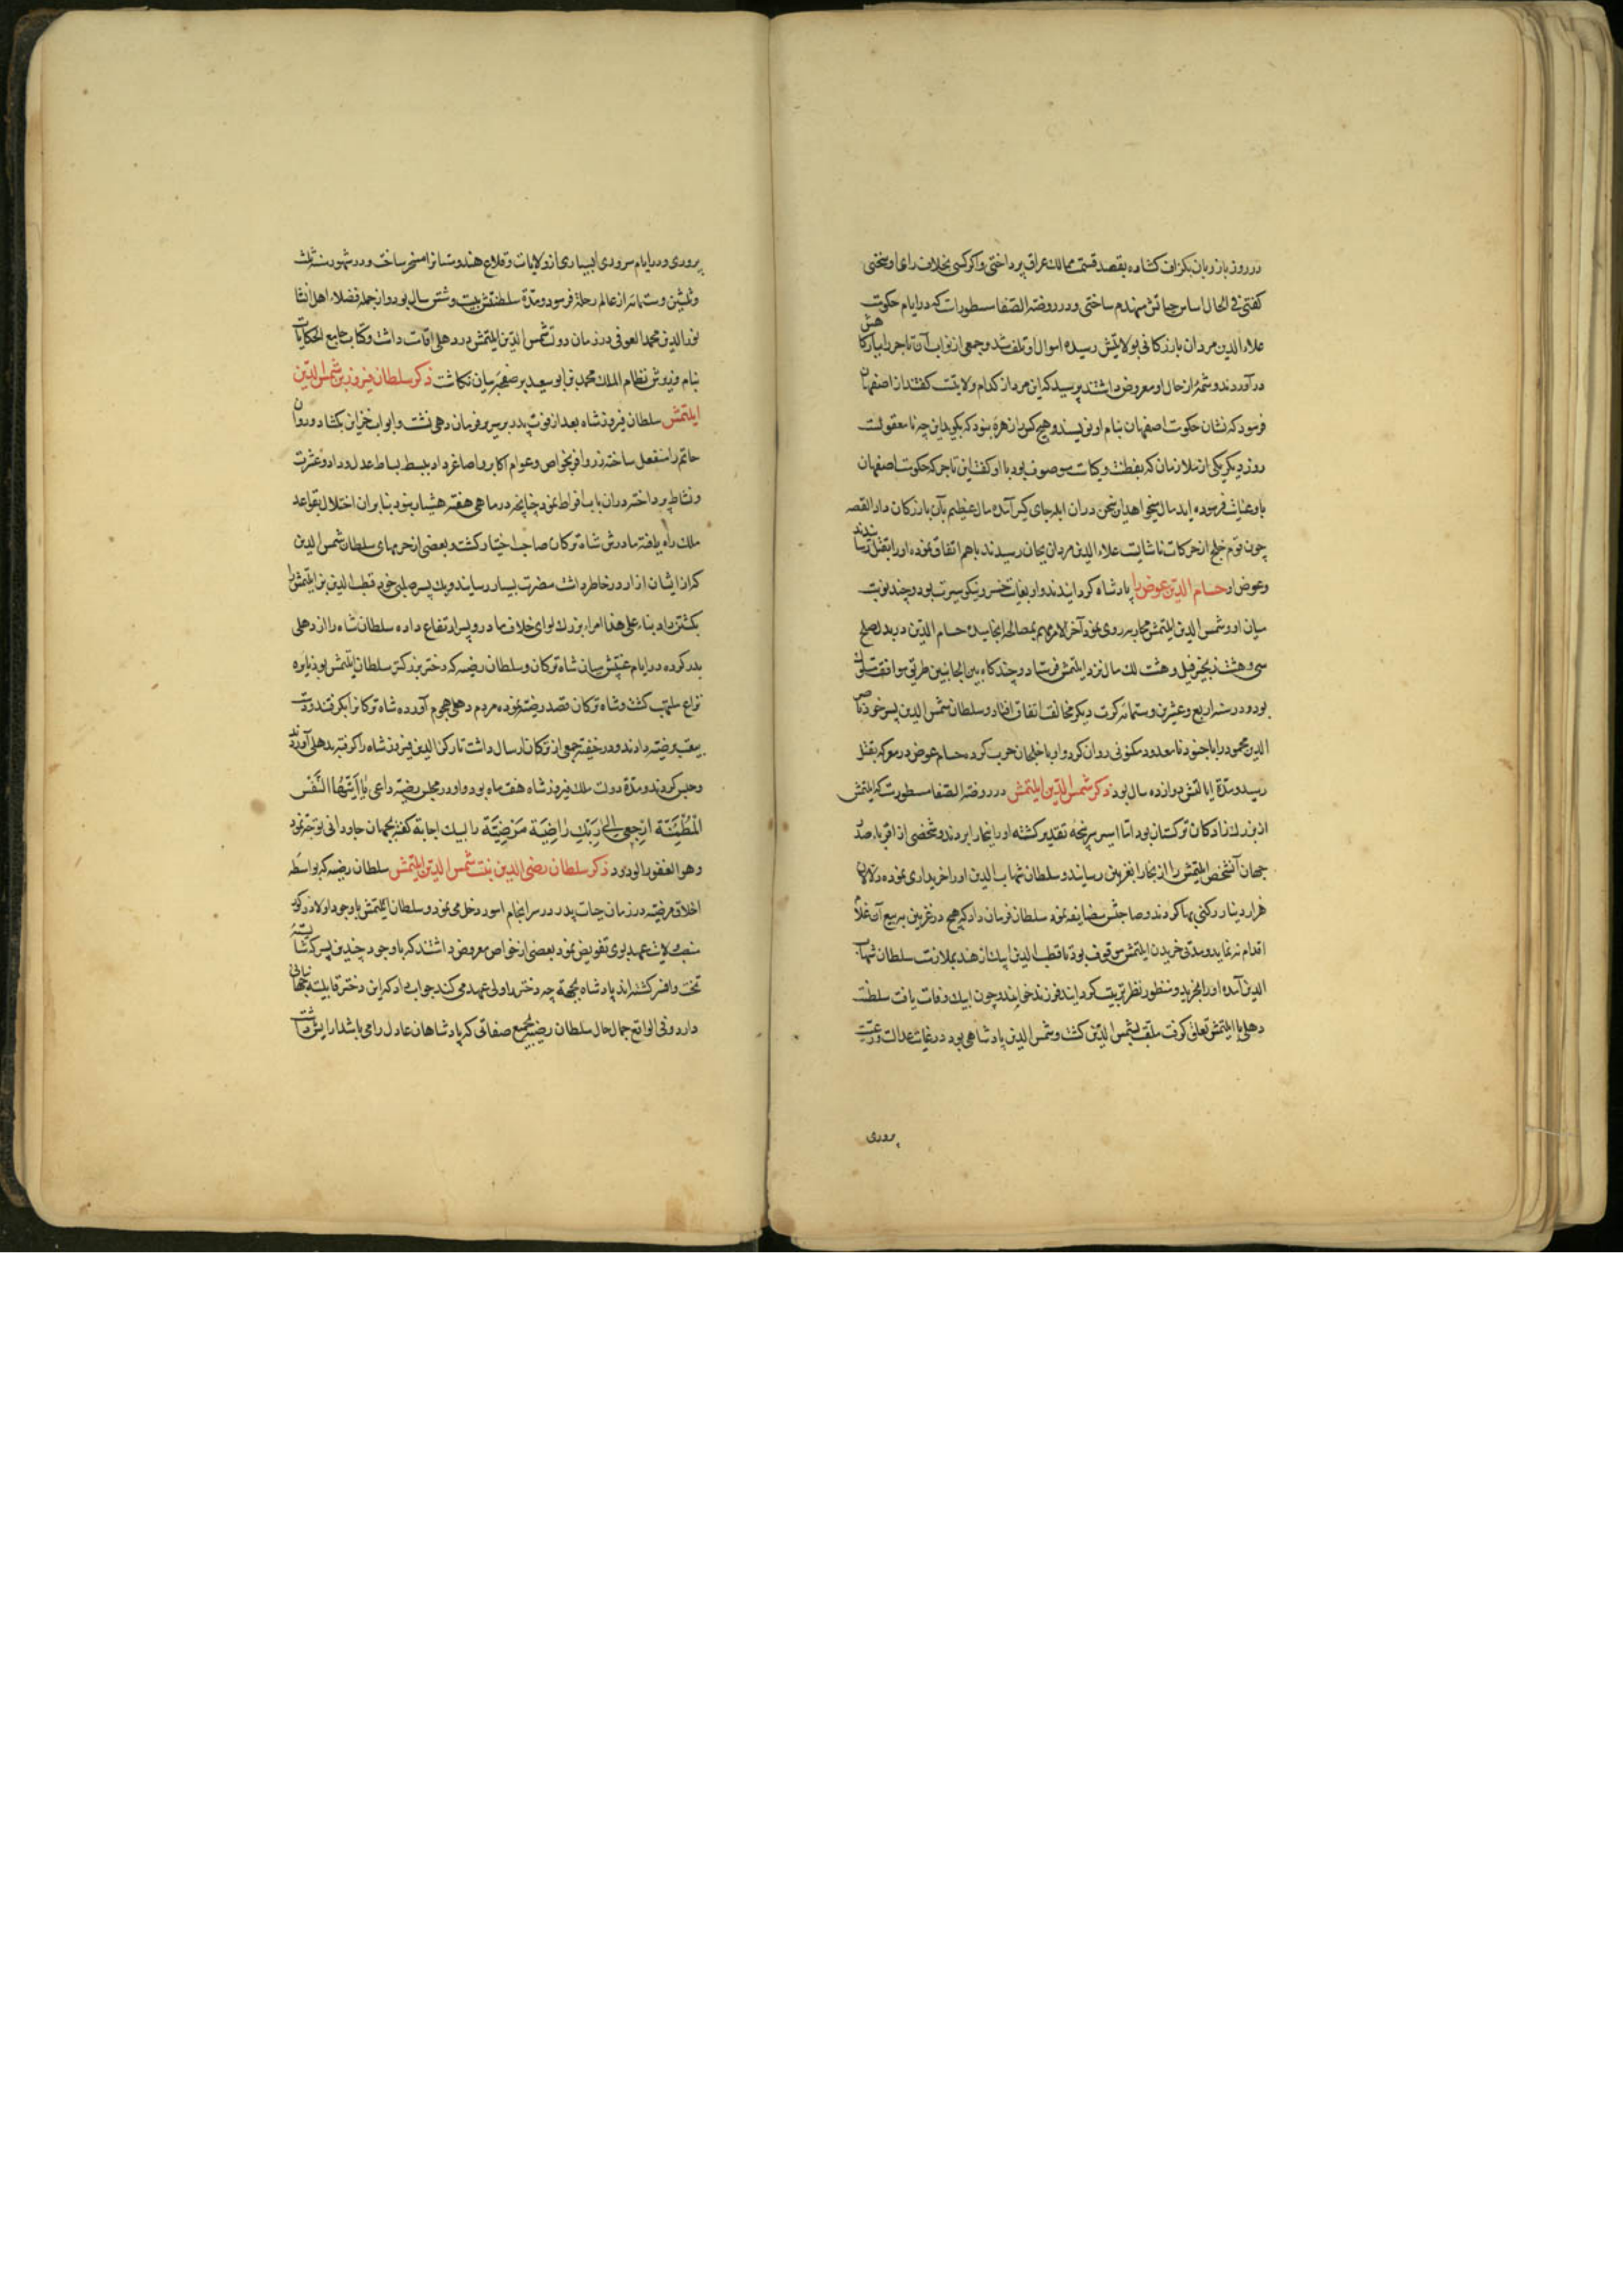 در روز بار زبان بگزاف کشاده بقصد قسمت ممالک عراق پرداختی و اگر کسی بخلاف رای او سخنی
کفتی فی الحال اساس حیاتش منهدم ساختی و در روضة الصفا مسطورات که در ایام حکومت
علاء الدین مردان بازرکانی بولایتش رسیده اموال او تلف شد و جمعی از نواب آن تاجر را ببارکاهش
در آوردند و شمهٔ از حال او معروض داشتند پرسید که این مرد از کدام ولایتست کفتند از اصفهان
فرمود که نشان حکومت اصفهان بنام او نویسند و هیچ کس را زهره نبود که بکوید این چه نامعقولست
روز دیکر یکی از ملازمان که بفطنت و کیاست موصوف بود با او کفت این تاجر که حکومت اصفهان
باو عنایت فرموده اید مال میخواهد او سخن در آن ابله جای کیر آمده مال عظیم بآن بازرکان داد القصه
چون قوم خلج از حرکات ناشایست علاء الدین مردان بجان رسیدند باهم اتفاق نموده او را بقتل رسانیدند
و عوض او حسام الدین عوض را پادشاه کردانیدند و او بغایت خسرو نیکو سیرت بود و چند نوبت
میان او و شمس الدین ایلتمش محاربه روی نمود آخر الامر مهم بمصالحه انجامیده حسام الدین در بدل صلح
سی و هشت زنجیر فیل و هشت لک مال نزد ایلتمش فرستاد و چندکاه بین الجانبین طریق موافقت مسلوک
بود و در سنه اربع و عشرین و ستمائه کرت دیکر مخالفت اتفاق افتاد و سلطان شمس الدین پسر خود ناصر
الدین محمود را با جنود نامعدود بلکنوتی روان کرد و او با خلجیان حرب کرده حسام عوض در معرکه بقتل
رسید و مدة ایالتش دوازده سال بود ذکر شمس الدین ایلتمش در روضة الصفا مسطورست که ایلتمش
از بزرک زادکان ترکستان بود اما اسیر سرپنجه تقدیر کشته او را ببخارا بردند و شخصی از اقرباء صدر
جهان آنشخص ایلتمش را از بخارا بغزنین رسانید و سلطان شهاب الدین او را خریداری نموده دلالان
هزار دینار رکنی بها کردند و صاحبش مضایقه نمود سلطان فرمان داد که هیچ در غزنین ببیع آن غلام
اقدام ننماید و مدتی خریدن ایلتمش موقوف بود تا قطب الدین ایبک از هند بملازمت سلطان شهاب
الدین آمده او را بخرید و منظور نظر تربیت کردانید فرزند خواند و چون ایبک وفات یافت سلطنت
دهلی با ایلتمش تعلق کرفت ملقب بشمس الدین کشت و شمس الدین پادشاهی بود در غایت عدالت و رعیت
پروری
پروری و در ایام سروری بسیاری از ولایات و قلاع هندوستانرا مسخر ساخت و در شهور سنه ثلث
و ثلثین و ستمائه از عالم رحلة فرمود و مدة سلطنتش بیست و شش سال بود و از جمله فضلاء اهل انشا
نور الدین محمد العوفی در زمان دولت شمس الدین ایلتمش در دهلی اقامت داشت و کتاب جامع الحکایات
بنام وزیرش نظام الملک محمد بن ابو سعید بر صفحهٔ بیان نکاشت ذکر سلطان فیروز بن شمس الدین
ایلتمش سلطان فیروز شاه بعد از فوت پدر بر سریر فرمان دهی نشست و ابواب خزاین بکشاد و روان
حاتم را منفعل ساخته زر وافر بخواص و عوام اکابر و اصاغر داد و ببسط بساط عدل و داد و عشرت
و نشاط پرداخته در آن باب افراط نمود چنانچه در ماهی هفته هشیار نبود بنا بر آن اختلال بقواعد
ملک راه یافته مادرش شاه ترکان صاحب اختیار کشت و بعضی از حرمهای سلطان شمس الدین
که از ایشان ازار در خاطر داشت مضرت بسیار رسانید و یک پسر صلبی خود قطب الدین بن ایلتمش را
بکشتن داد بناء علی هذا امراء بزرک لوای خلاف مادر و پسر ارتفاع داده سلطان شاه را از دهلی
بدر کرده در ایام غیبتش میان شاه ترکان و سلطان رضیه که دختر بزرکتر سلطان ایلتمش بود نایره
نزاع ملتهب کشت و شاه ترکان قصد رضیه نموده مردم دهلی هجوم آورده شاه ترکانرا بکرفتند و دست
بیعت برضیه دادند و در خفیه جمعی از ترکان ارسال داشت تا رکن الدین فیروز شاه را کرفته بدهلی آوردند
و حبس کردند و مدة دولت ملک فیروز شاه هفت ماه بود و او در مجلس رضیه داعی یا ایتها النفس
المطمئنة ارجعی الی ربک راضیة مرضیة را لبیک اجابة کفته بجهان جاودانی توجه نمود
و هو الغفور الودود ذکر سلطان رضی الدین بنت شمس الدین ایلتمش سلطان رضیه که بواسطه
اخلاق مرضیه در زمان حیات پدر در سرانجام امور دخل می نمود و سلطان ایلتمش با وجود اولاد ذکور
منصب ولایت عهد بوی تفویض نمود بعضی از خواص معروض داشتند که با وجود چندین پسر که شایسته
تخت و افسر کشته اند پادشاه بجهة چه دختر را ولی عهد می کند جواب داد که این دختر قابلیت جهانبانی
دارد و فی الواقع جمال حال سلطان رضیه بجمیع صفاتی که پادشاهان عادل را می باشد آرایش داشت